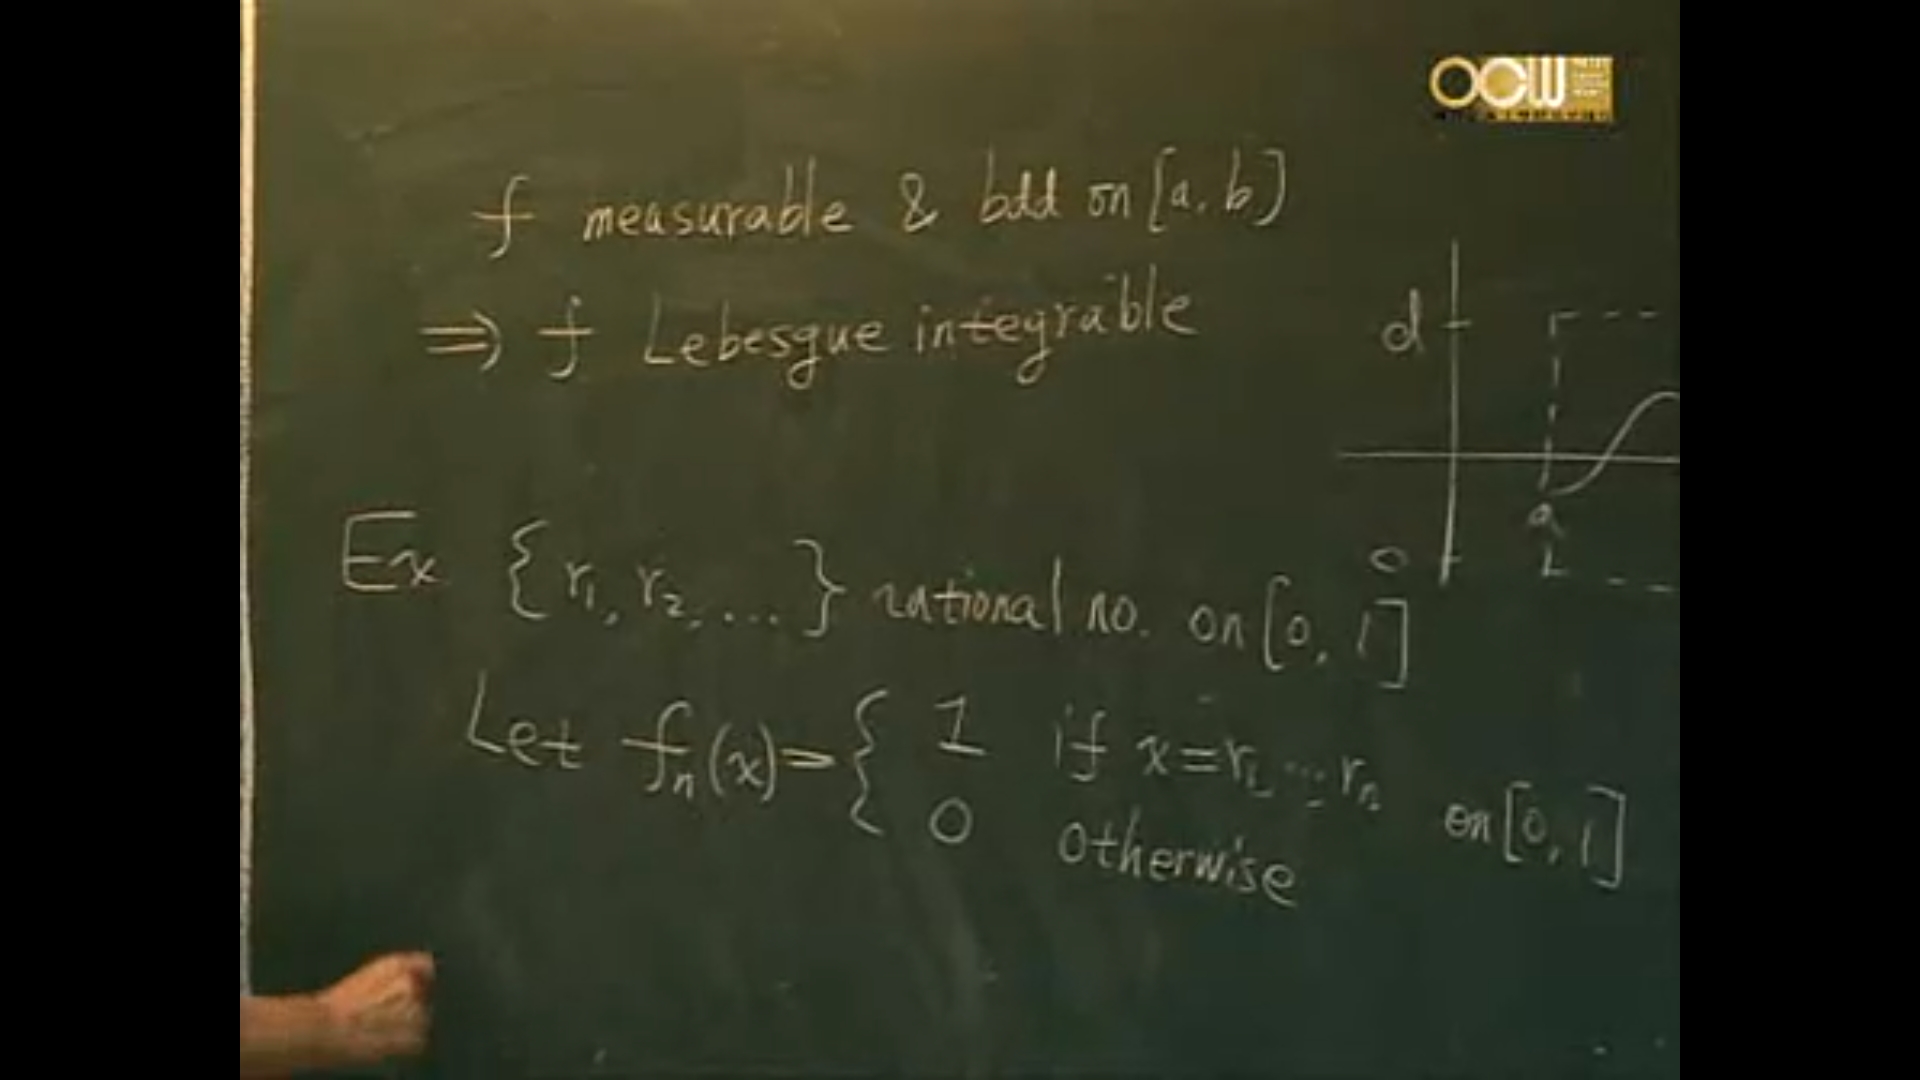 OCW
f measurable & bdd on [a, b]
⇒ f Lebesgue integrable
d
a
c
Ex {r₁, r₂, ...} rational no. on [0, 1]
Let fₙ(x) = { 1 if x = r₁ ... rₙ
0 otherwise on [0, 1]